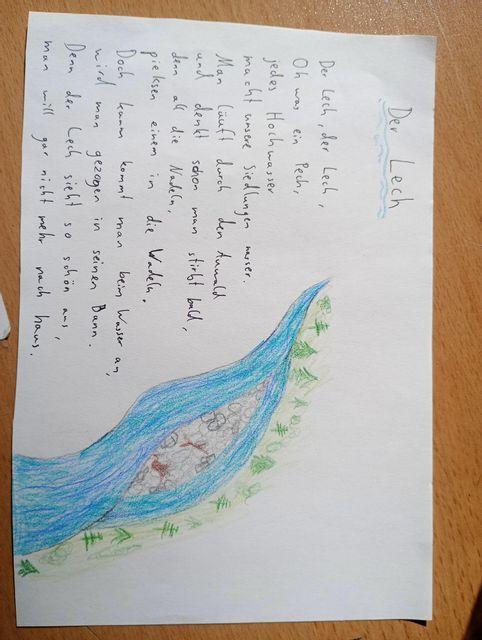 Der Lech
Der Lech, der Lech,
Oh was ein Pech,
jedes Hochwasser
macht unsere Siedlungen nasser.
Man läuft durch den Auwald
und denkt schon man stirbt bald,
denn all die Nadeln,
pieksen einem in die Wadeln.
Doch kaum kommt man beim Wasser an,
wird man gezogen in seinen Bann.
Denn der Lech sieht so schön aus,
man will gar nicht mehr nach haus.